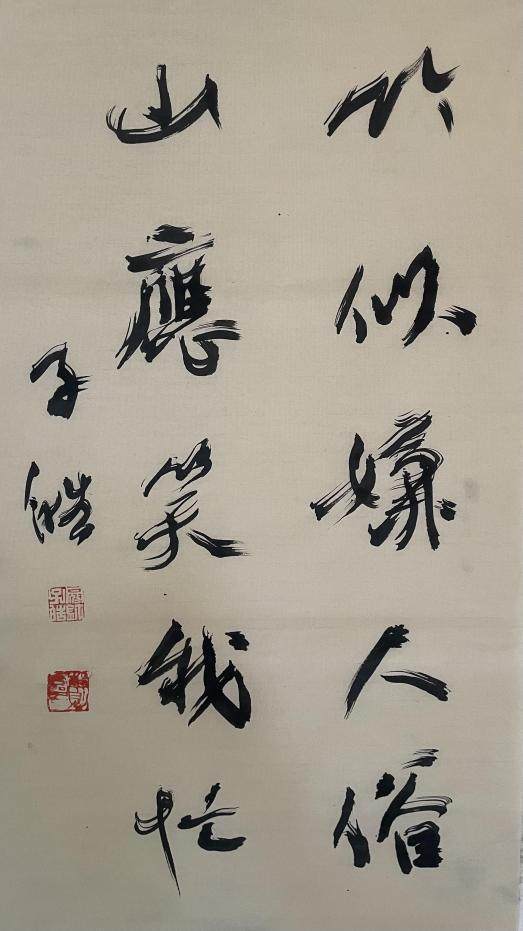 竹似嫌人俗
山應笑我忙
子浩